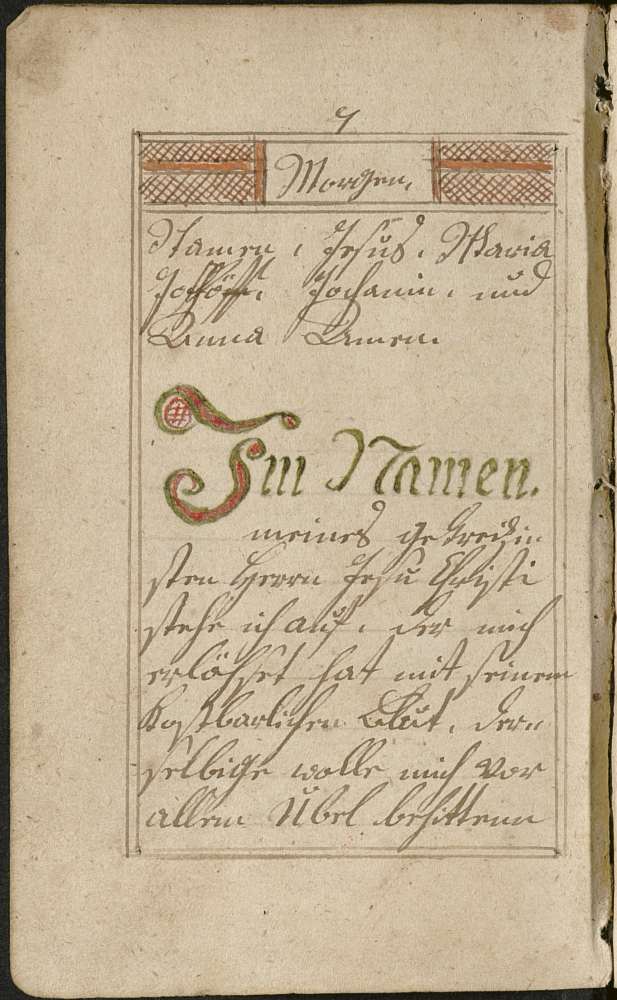 7
Morgen,
Namen, Jesus. Maria
Johanin. und
Anna Amen.
Im Namen.
meines gekreizin
sten Herrn Jesu Christi
stehe ich auf. der mich
erlöhset hat mit seinem
Kostbarlichen Blut. dern
selbige wolle mich vor
allem Übel behittenn